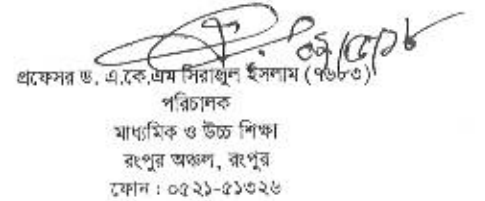 প্রফেসর ড. এ.কে.এম সিরাজুল ইসলাম (৭৬৮৩)
পরিচালক
মাধ্যমিক ও উচ্চ শিক্ষা
রংপুর অঞ্চল, রংপুর
ফোন : ০৫২১-৫১৩২৬